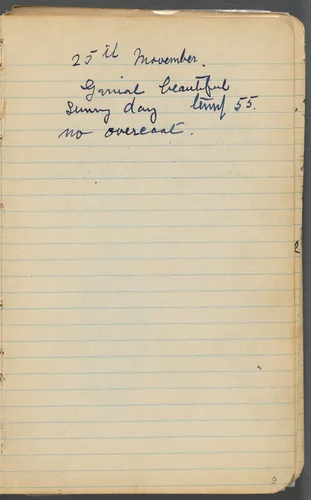 25th November.
Genial beautiful
sunny day temp 55.
no overcoat.